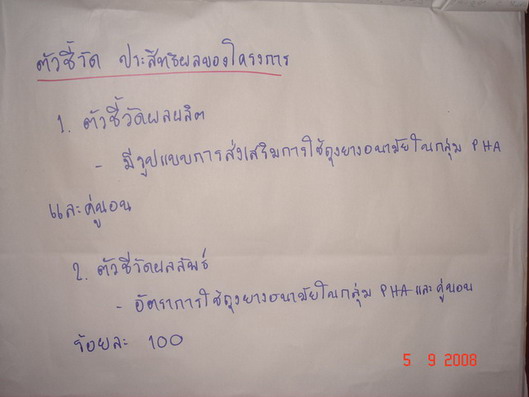 ตัวชี้วัด ประสิทธิผลของโครงการ
1. ตัวชี้วัดผลผลิต
- มีรูปแบบการส่งเสริมการใช้ถุงยางอนามัยในกลุ่ม PHA
และคู่นอน
2. ตัวชี้วัดผลลัพธ์
- อัตราการใช้ถุงยางอนามัยในกลุ่ม PHA และคู่นอน
ร้อยละ 100
5 9 2008